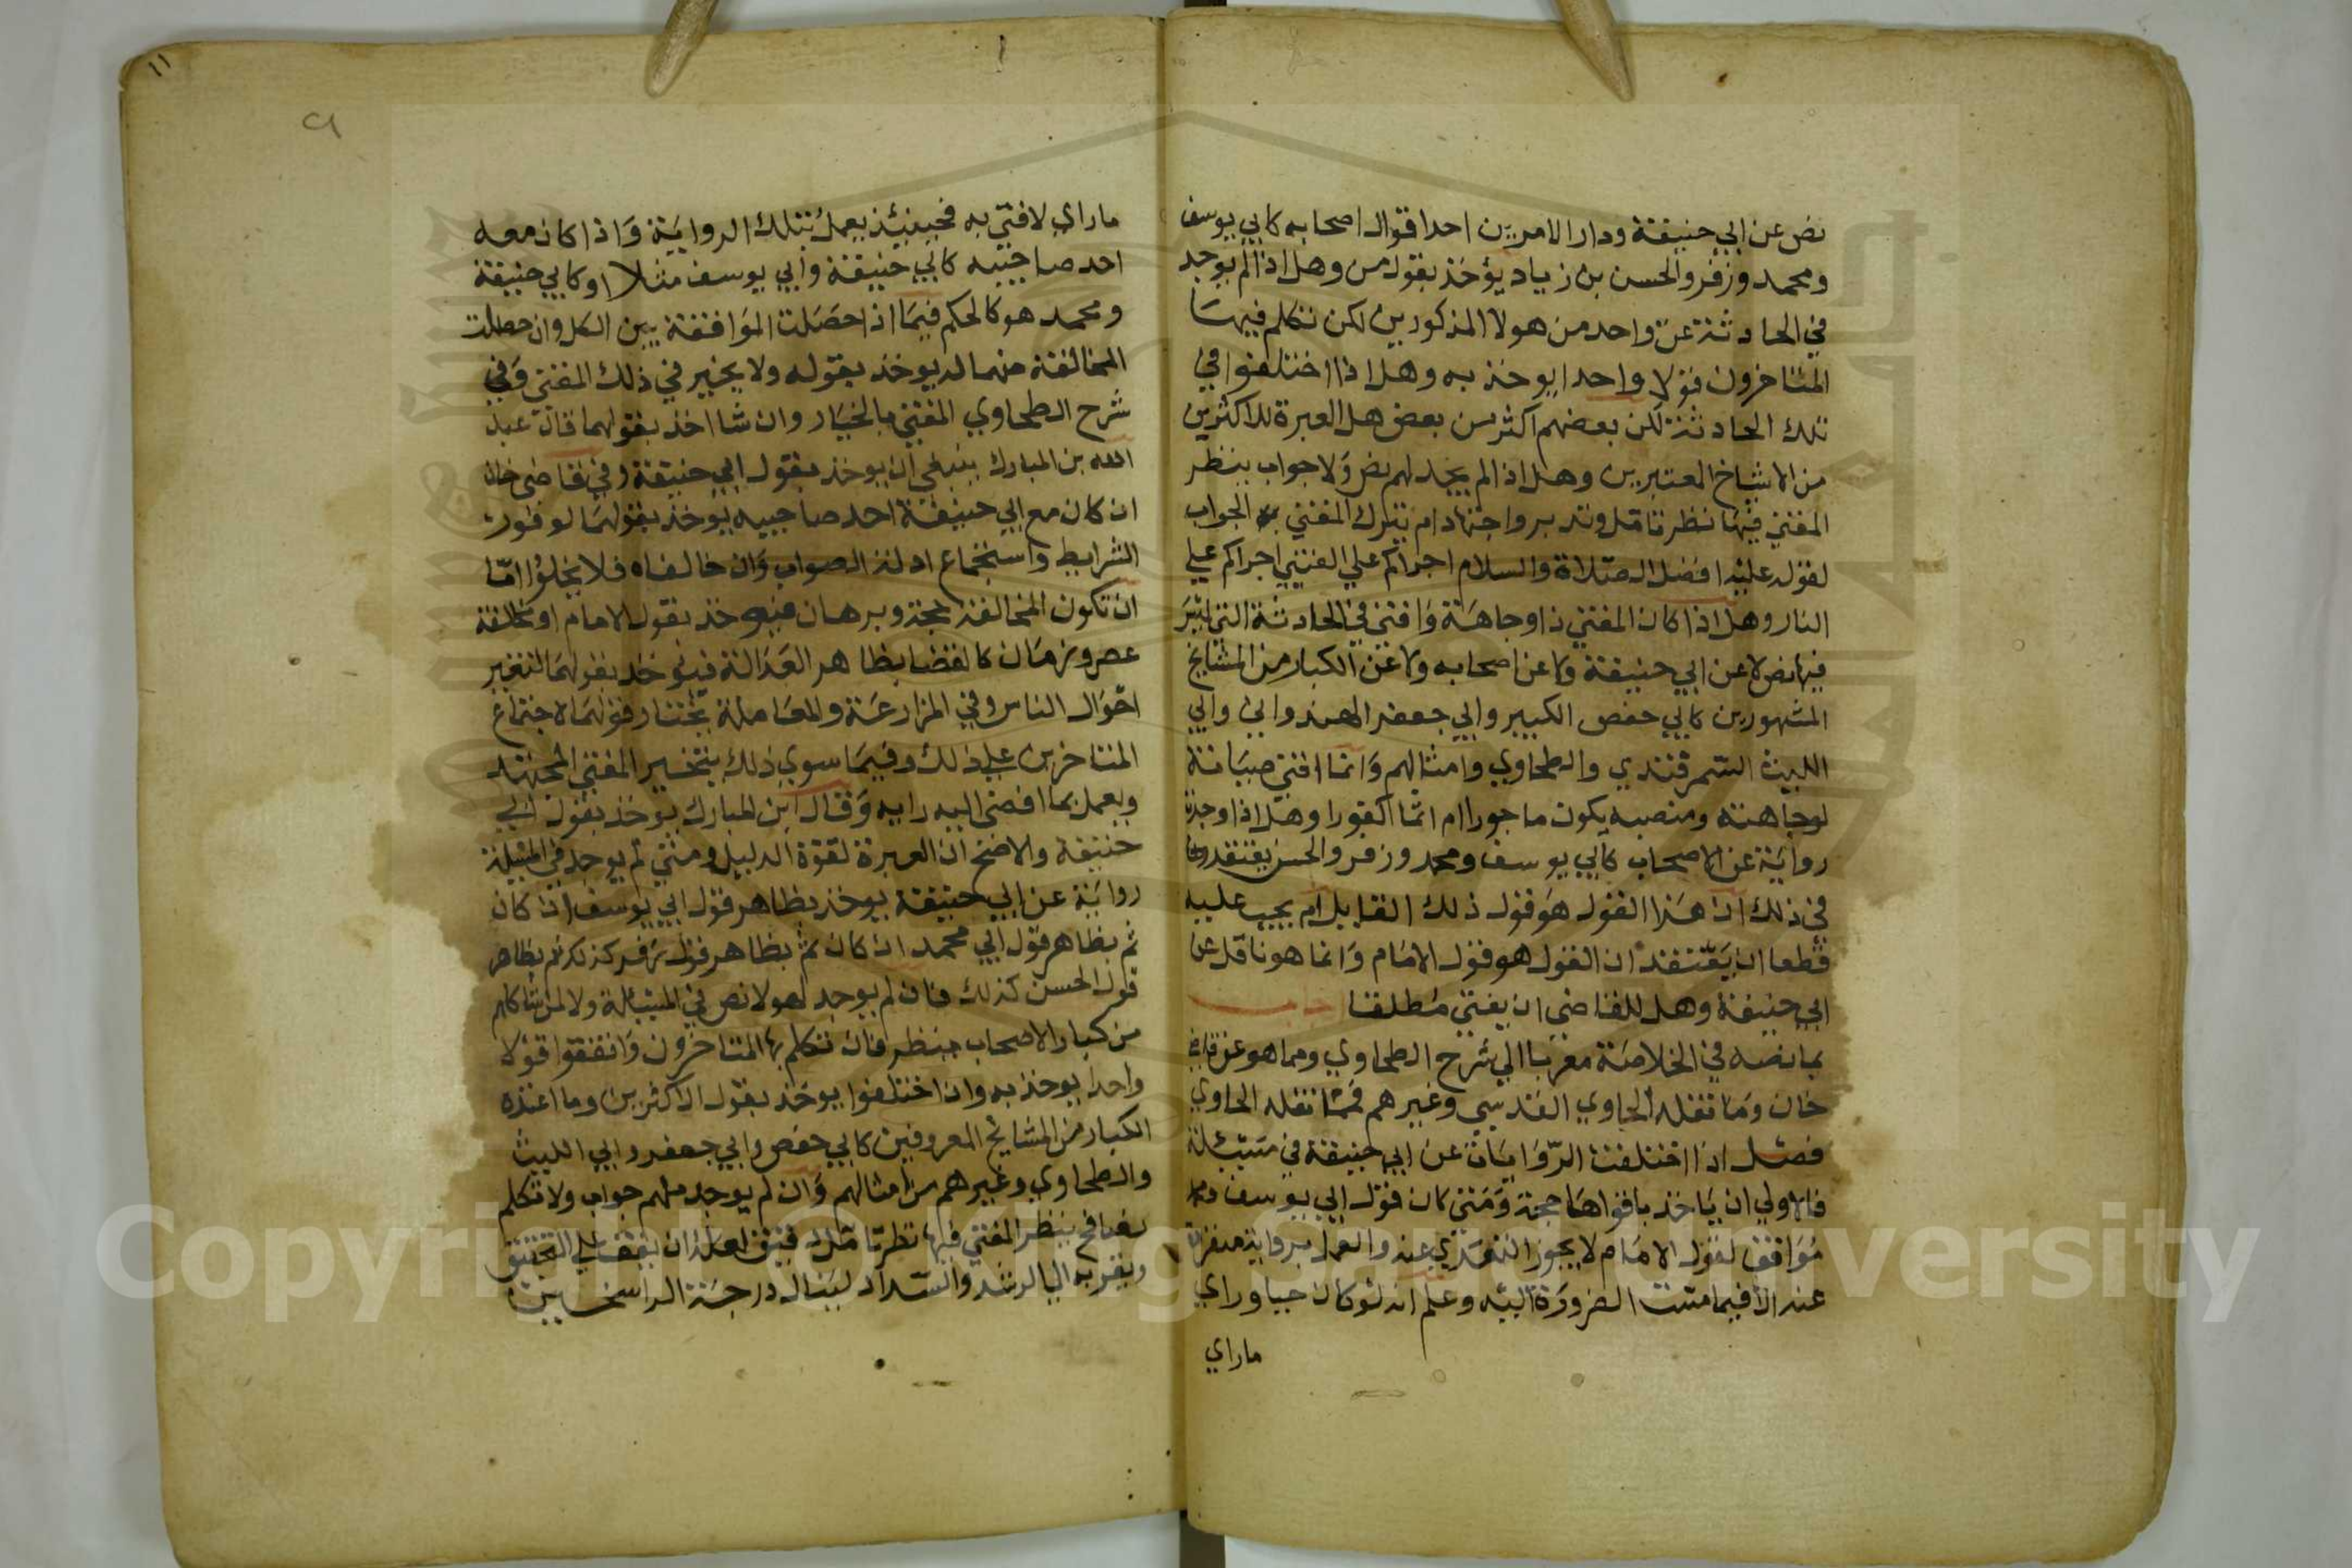 نص عن ابي حنيفة ودار الامر بين احد اقوال اصحابه كابي يوسف
ومحمد وزفر والحسن بن زياد يؤخذ بقول من وهل اذا لم يوجد
في الحادثة عن واحد من هولا المذكورين لكن تكلم فيها
المتاخرون قولا واحدا يوخذ به وهل اذا اختلفوا في
تلك الحادثة لكن بعضهم اكثر من بعض هل العبرة للاكثرين
من الاشياخ المعتبرين وهل اذا لم يجد لهم نص ولا جواب ينظر
المفتي فيها نظر تامل وتدبر واجتهاد ام يترك المفتي الجواب
لقوله عليه افضل الصلاة والسلام اجراكم علي الفتيي اجراكم علي
النار وهل اذا كان المفتي ذا وجاهة وافتي في الحادثة التي ليس
فيها نص لا عن ابي حنيفة ولا عن اصحابه ولا عن الكبار من المشايخ
المشهورين كابي حفص الكبير وابي جعفر الهندواني وابي
الليث السمرقندي والطحاوي وامثالهم وانما افتي صيانة
لوجاهته ومنصبه يكون ماجورا ام اثما كفورا وهل اذا وجدت
رواية عن الاصحاب كابي يوسف ومحمد وزفر والحسن يعتقد
في ذلك ان هذا القول هو قول ذلك القايل ام يجب عليه
قطعا ان يعتقد ان القول هو قول الامام وانما هو ناقل عن
ابي حنيفة وهل للقاضي ان يفتي مطلقا اجاب
بما نصه في الخلاصة معزيا الي شرح الطحاوي ومما هو عن قاضي
خان وما نقله الحاوي القدسي وغيرهم فمما نقله الحاوي
فصل اذا اختلفت الروايات عن ابي حنيفة في مسئلة
فالاولي ان ياخذ باقواها حجة ومتي كان قول ابي يوسف
موافق لقول الامام لا يجوز التعدي عنه والعمل برواية
عنه الا فيما مست الضرورة اليه وعلم انه لو كان حيا وراي
ماراي
١١
٩
ماراي لافتي به فحينئذ يعمل بتلك الرواية واذا كان معه
احد صاحبيه كابي حنيفة وابي يوسف مثلا او كابي حنيفة
ومحمد هو كالحكم فيما اذا حصلت الموافقة بين الكل وان حصلت
المخالفة منهما له يوخذ بقوله ولا يخير في ذلك المفتي وفي
شرح الطحاوي المفتي بالخيار وان شا اخذ بقولهما قال عبد
الله بن المبارك ينبغي ان يوخذ بقول ابي حنيفة وفي قاضي خان
ان كان مع ابي حنيفة احد صاحبيه يوخذ بقولهما لوفور
الشرايط واستجماع ادلة الصواب وان خالفاه فلا يخلوا اما
ان تكون المخالفة بحجة وبرهان يوخذ بقول الامام او مخالفة
عصر وزمان كالقضا بظاهر العدالة فيوخذ بقولهما لتغير
احوال الناس وفي المزارعة والمعاملة يختار قولهما لاجتماع
المتاخرين علي ذلك وفيما سوي ذلك يتخير المفتي المجتهد
ويعمل بما افضي اليه رايه وقال ابن المبارك يوخذ بقول ابي
حنيفة والاصح ان العبرة لقوة الدليل ومتي لم يوجد في المسئلة
رواية عن ابي حنيفة يوخذ بظاهر قول ابي يوسف ان كان
ثم بظاهر قول ابي محمد ان كان ثم بظاهر قول زفر كذلك ثم بظاهر
قول الحسن كذلك فان لم يوجد لهولا نص في المسئلة ولا لمن شاكلهم
من كبار الاصحاب ينظر فان تكلم بها المتاخرون واتفقوا قولا
واحدا يوخذ به وان اختلفوا يوخذ بقول الاكثرين وما اعتمده
الكبار من المشايخ المعروفين كابي حفص وابي جعفر وابي الليث
والطحاوي وغيرهم من امثالهم وان لم يوجد منهم جواب ولا تكلم
ينظر المفتي فيها نظر تامل لعله ان يقف علي التحقيق
ويقربه الي الرشد والسداد لينال درجة الراسخين
Copyright © King Saud University